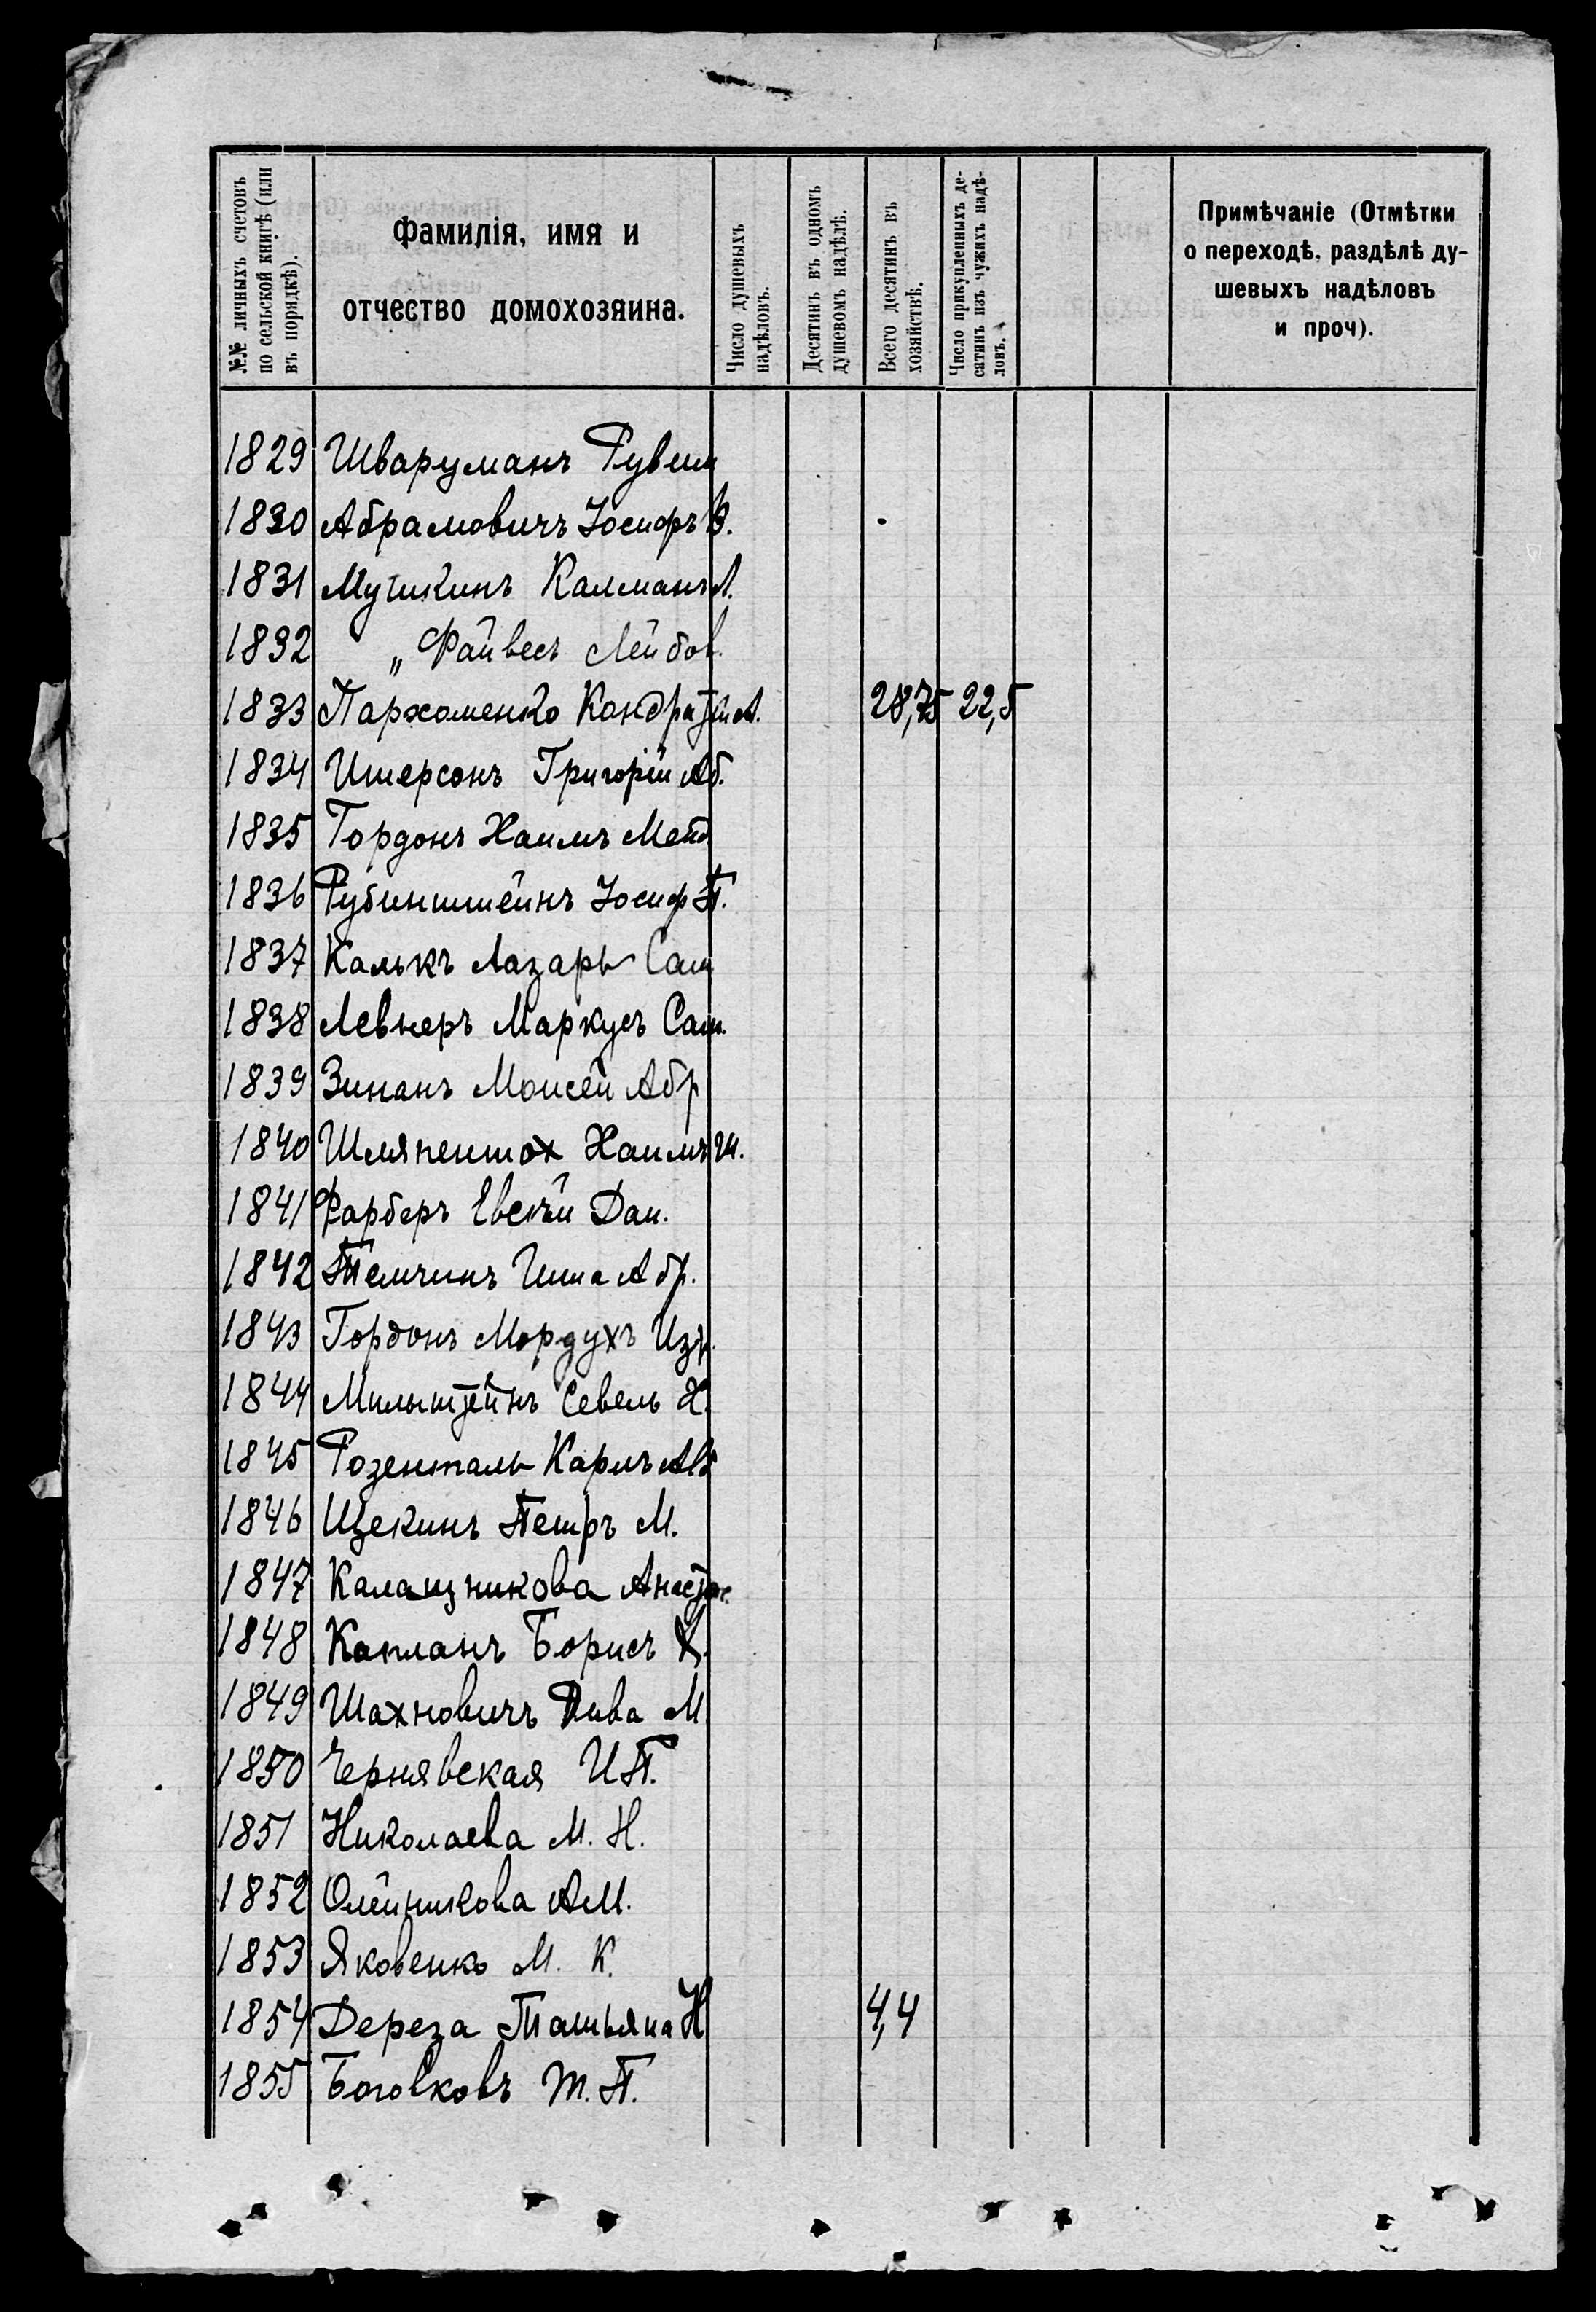 №№ личныхъ счетовъ по сельской книгѣ (или въ порядкѣ).
Фамилія, имя и отчество домохозяина.
Число душевыхъ надѣловъ.
Десятинъ въ одномъ душевомъ надѣлѣ.
Всего десятинъ въ хозяйствѣ.
Число прикупленныхъ десятинъ изъ чужихъ надѣловъ.
Примѣчаніе (Отмѣтки о переходѣ, раздѣлѣ душевыхъ надѣловъ и проч).
1829 Шварцманъ Рувим
1830 Абрамовичъ Іосифъ В.
1831 Мушкинъ Калманъ Л.
1832 „ Файвесъ Лейбов.
1833 Пархоменко Кондратій А. 28,75 22,5
1834 Итерсонъ Григорій Аб.
1835 Гордонъ Хаимъ
1836 Рубинштейнъ Іосиф П.
1837 Калькъ Лазарь Сам
1838 Левнеръ Маркусъ Сам.
1839 Зиманъ Моисей Абр
1840 Шляпентох Хаимъ Ш.
1841 Фарберъ Евсѣй Дан.
1842 Темчинъ Абр.
1843 Гордонъ Мордухъ Изр.
1844 Мильштейнъ Севель Х.
1845 Розенталь Карлъ Ав
1846 Щекинъ Петръ М.
1847 Калашникова Анастас.
1848 Капланъ Борисъ
1849 Шахновичъ Рива М
1850 Чернявская И П.
1851 Николаева М. Н.
1852 Олейникова А М.
1853 Яковенко М. К.
1854 Дереза Татьяна Н 4,4
1855 Боговковъ Т. П.